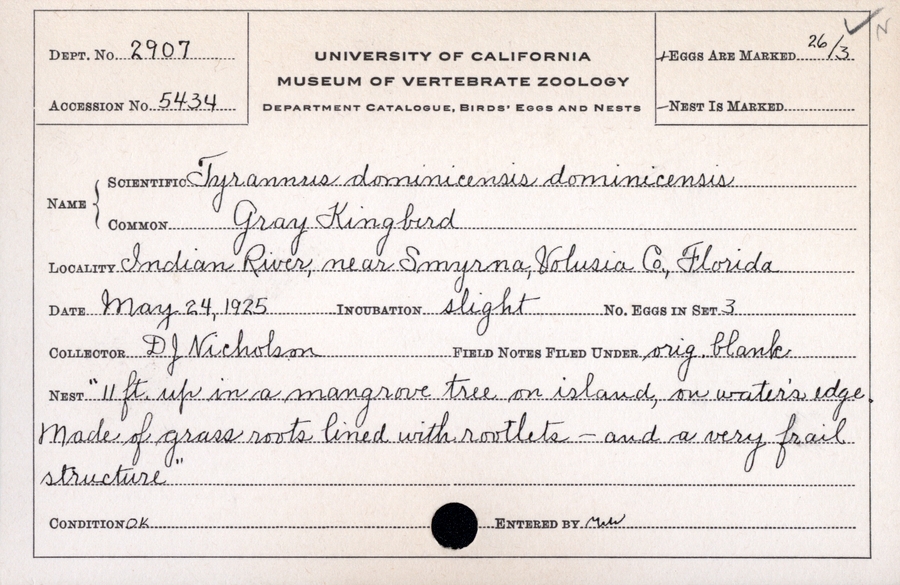 Dept. No. 2907
Accession No. 5434
UNIVERSITY OF CALIFORNIA
MUSEUM OF VERTEBRATE ZOOLOGY
Department Catalogue, Birds' Eggs and Nests
Eggs Are Marked 26/3
Nest Is Marked
N
Name
Scientific Tyrannus dominicensis dominicensis
Common Gray Kingbird
Locality Indian River, near Smyrna, Volusia Co., Florida
Date May 24, 1925 Incubation slight No. Eggs in Set 3
Collector DJ Nicholson Field Notes Filed Under orig. blank
Nest "11 ft. up in a mangrove tree on island, on water's edge.
Made of grass roots lined with rootlets – and a very frail
structure"
Condition OK Entered by